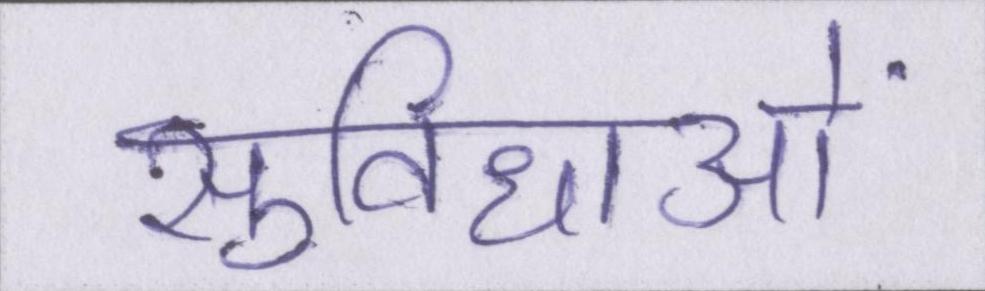 सुविधाओं